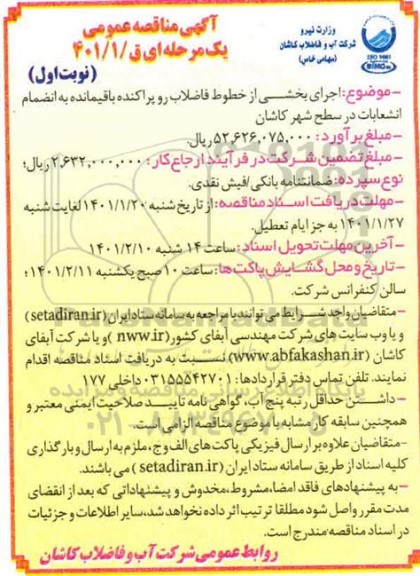 آگهی مناقصه عمومی
یک مرحله ای ق/۴۰۱/۱
(نوبت اول)
وزارت نیرو
شرکت آب و فاضلاب کاشان
(سهامی خاص)
-موضوع: اجرای بخشی از خطوط فاضلاب رو پراکنده باقیمانده به انضمام
انشعابات در سطح شهر کاشان
-مبلغ برآورد: ۵۲,۶۲۶,۰۷۵,۰۰۰ ریال.
-مبلغ تضمین شرکت در فرآیند ارجاع کار: ۲,۶۳۲,۰۰۰,۰۰۰ ریال؛
نوع سپرده: ضمانتنامه بانکی/فیش نقدی.
-مهلت دریافت اسناد مناقصه: از تاریخ شنبه ۱۴۰۱/۱/۲۰ لغایت شنبه
۱۴۰۱/۱/۲۷ به جز ایام تعطیل.
-آخرین مهلت تحویل اسناد: ساعت ۱۴ شنبه ۱۴۰۱/۲/۱۰
-تاریخ و محل گشایش پاکت ها: ساعت ۱۰ صبح یکشنبه ۱۴۰۱/۲/۱۱؛
سالن کنفرانس شرکت.
-متقاضیان واجد شرایط می توانند با مراجعه به سامانه ستاد ایران (setadiran.ir)
و یا وب سایت های شرکت مهندسی آبفای کشور (nww.ir) و یا شرکت آبفای
کاشان (www.abfakashan.ir) نسبت به دریافت اسناد مناقصه اقدام
نمایند. تلفن تماس دفتر قراردادها: ۰۳۱۵۵۵۴۲۷۰۱ داخلی ۱۷۷
-داشتن حداقل رتبه پنج آب، گواهی نامه تأیید صلاحیت ایمنی معتبر و
همچنین سابقه کار مشابه با موضوع مناقصه الزامی است.
-متقاضیان علاوه بر ارسال فیزیکی پاکت های الف و ج، ملزم به ارسال و بارگذاری
کلیه اسناد از طریق سامانه ستاد ایران (setadiran.ir) می باشند.
-به پیشنهادهای فاقد امضا، مشروط، مخدوش و پیشنهاداتی که بعد از انقضای
مدت مقرر واصل شود مطلقا ترتیب اثر داده نخواهد شد، سایر اطلاعات و جزئیات
در اسناد مناقصه مندرج است.
روابط عمومی شرکت آب و فاضلاب کاشان